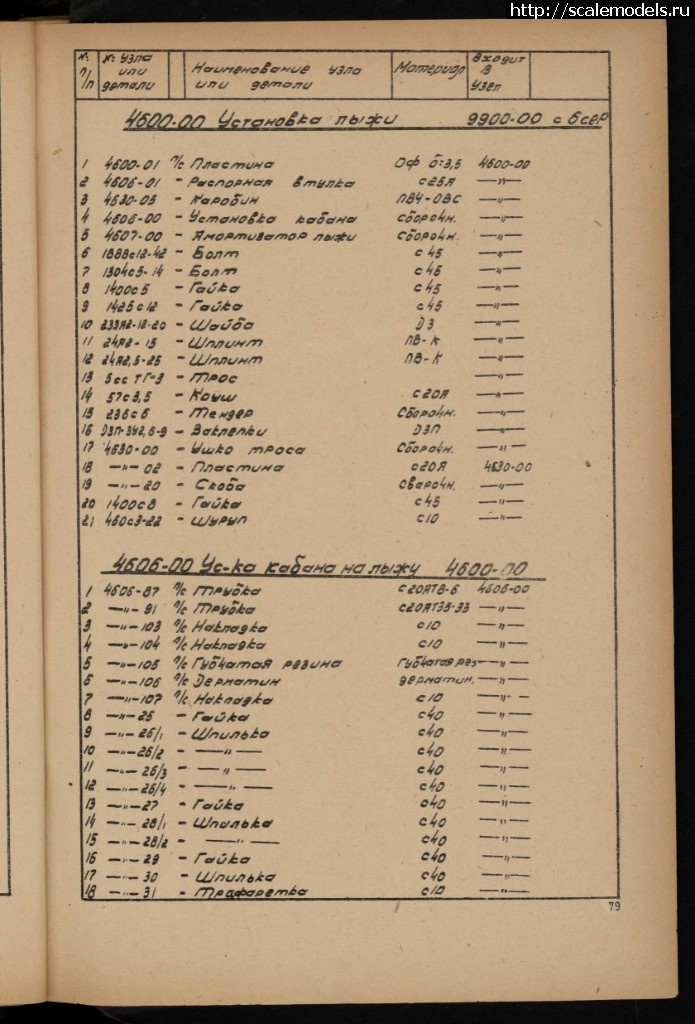 http://scalemodels.ru
№ п/п №: узла или детали Наименование узла или детали Материал Входит в узел
4600-00 Установка лыжи 9900-00 с 6 сер
1 4600-01 п/с Пластина ОФ δ=3,5 4600-00
2 4606-01 - Распорная втулка с25я —"—
3 4630-05 - Карабин ПВЧ-ОВС —"—
4 4606-00 - Установка кабана Сборочн. —"—
5 4607-00 - Амортизатор лыжи Сборочн. —"—
6 1888с12-42 - Болт с45 —"—
7 1304с5-14 - Болт с45 —"—
8 1400с5 - Гайка с45 —"—
9 1425с12 - Гайка с45 —"—
10 233А2-12-20 - Шайба Д3 —"—
11 24А2-15 - Шплинт ПВ-К —"—
12 24А2,5-25 - Шплинт ПВ-К —"—
13 5сс тГ=3 - Трос —"—
14 57с3,5 - Коуш с20А —"—
15 236с6 - Тендер Сборочн. —"—
16 ДЗП-ЗУ2,6-9 - Заклепки ДЗП —"—
17 4630-00 - Ушко троса Сборочн. —"—
18 —"— 02 - Пластина с20А 4630-00
19 —"— 20 - Скоба Сварочн. —"—
20 1400с8 - Гайка с45 —"—
21 460с3-22 - Шуруп с10 —"—
4606-00 Ус-ка кабана на лыжу 4600-00
1 4606-87 п/с Трубка с20АТ8-6 4606-00
2 —"— 91 п/с Трубка с20АТ35-33 —"—
3 —"— 103 п/с Накладка с10 —"—
4 —"— 104 п/с Накладка с10 —"—
5 —"— 105 п/с Губчатая резина Губчатая рез —"—
6 —"— 106 п/с Дерматин дерматин. —"—
7 —"— 107 п/с Накладка с10 —"—
8 —"— 25 - Гайка с40 —"—
9 —"— 26/1 - Шпилька с40 —"—
10 —"— 26/2 - —"— с40 —"—
11 —"— 26/3 - —"— с40 —"—
12 —"— 26/4 - —"— с40 —"—
13 —"— 27 - Гайка с40 —"—
14 —"— 28/1 - Шпилька с40 —"—
15 —"— 28/2 - —"— с40 —"—
16 —"— 29 - Гайка с40 —"—
17 —"— 30 - Шпилька с40 —"—
18 —"— 31 - Трафаретка с10 —"—
79